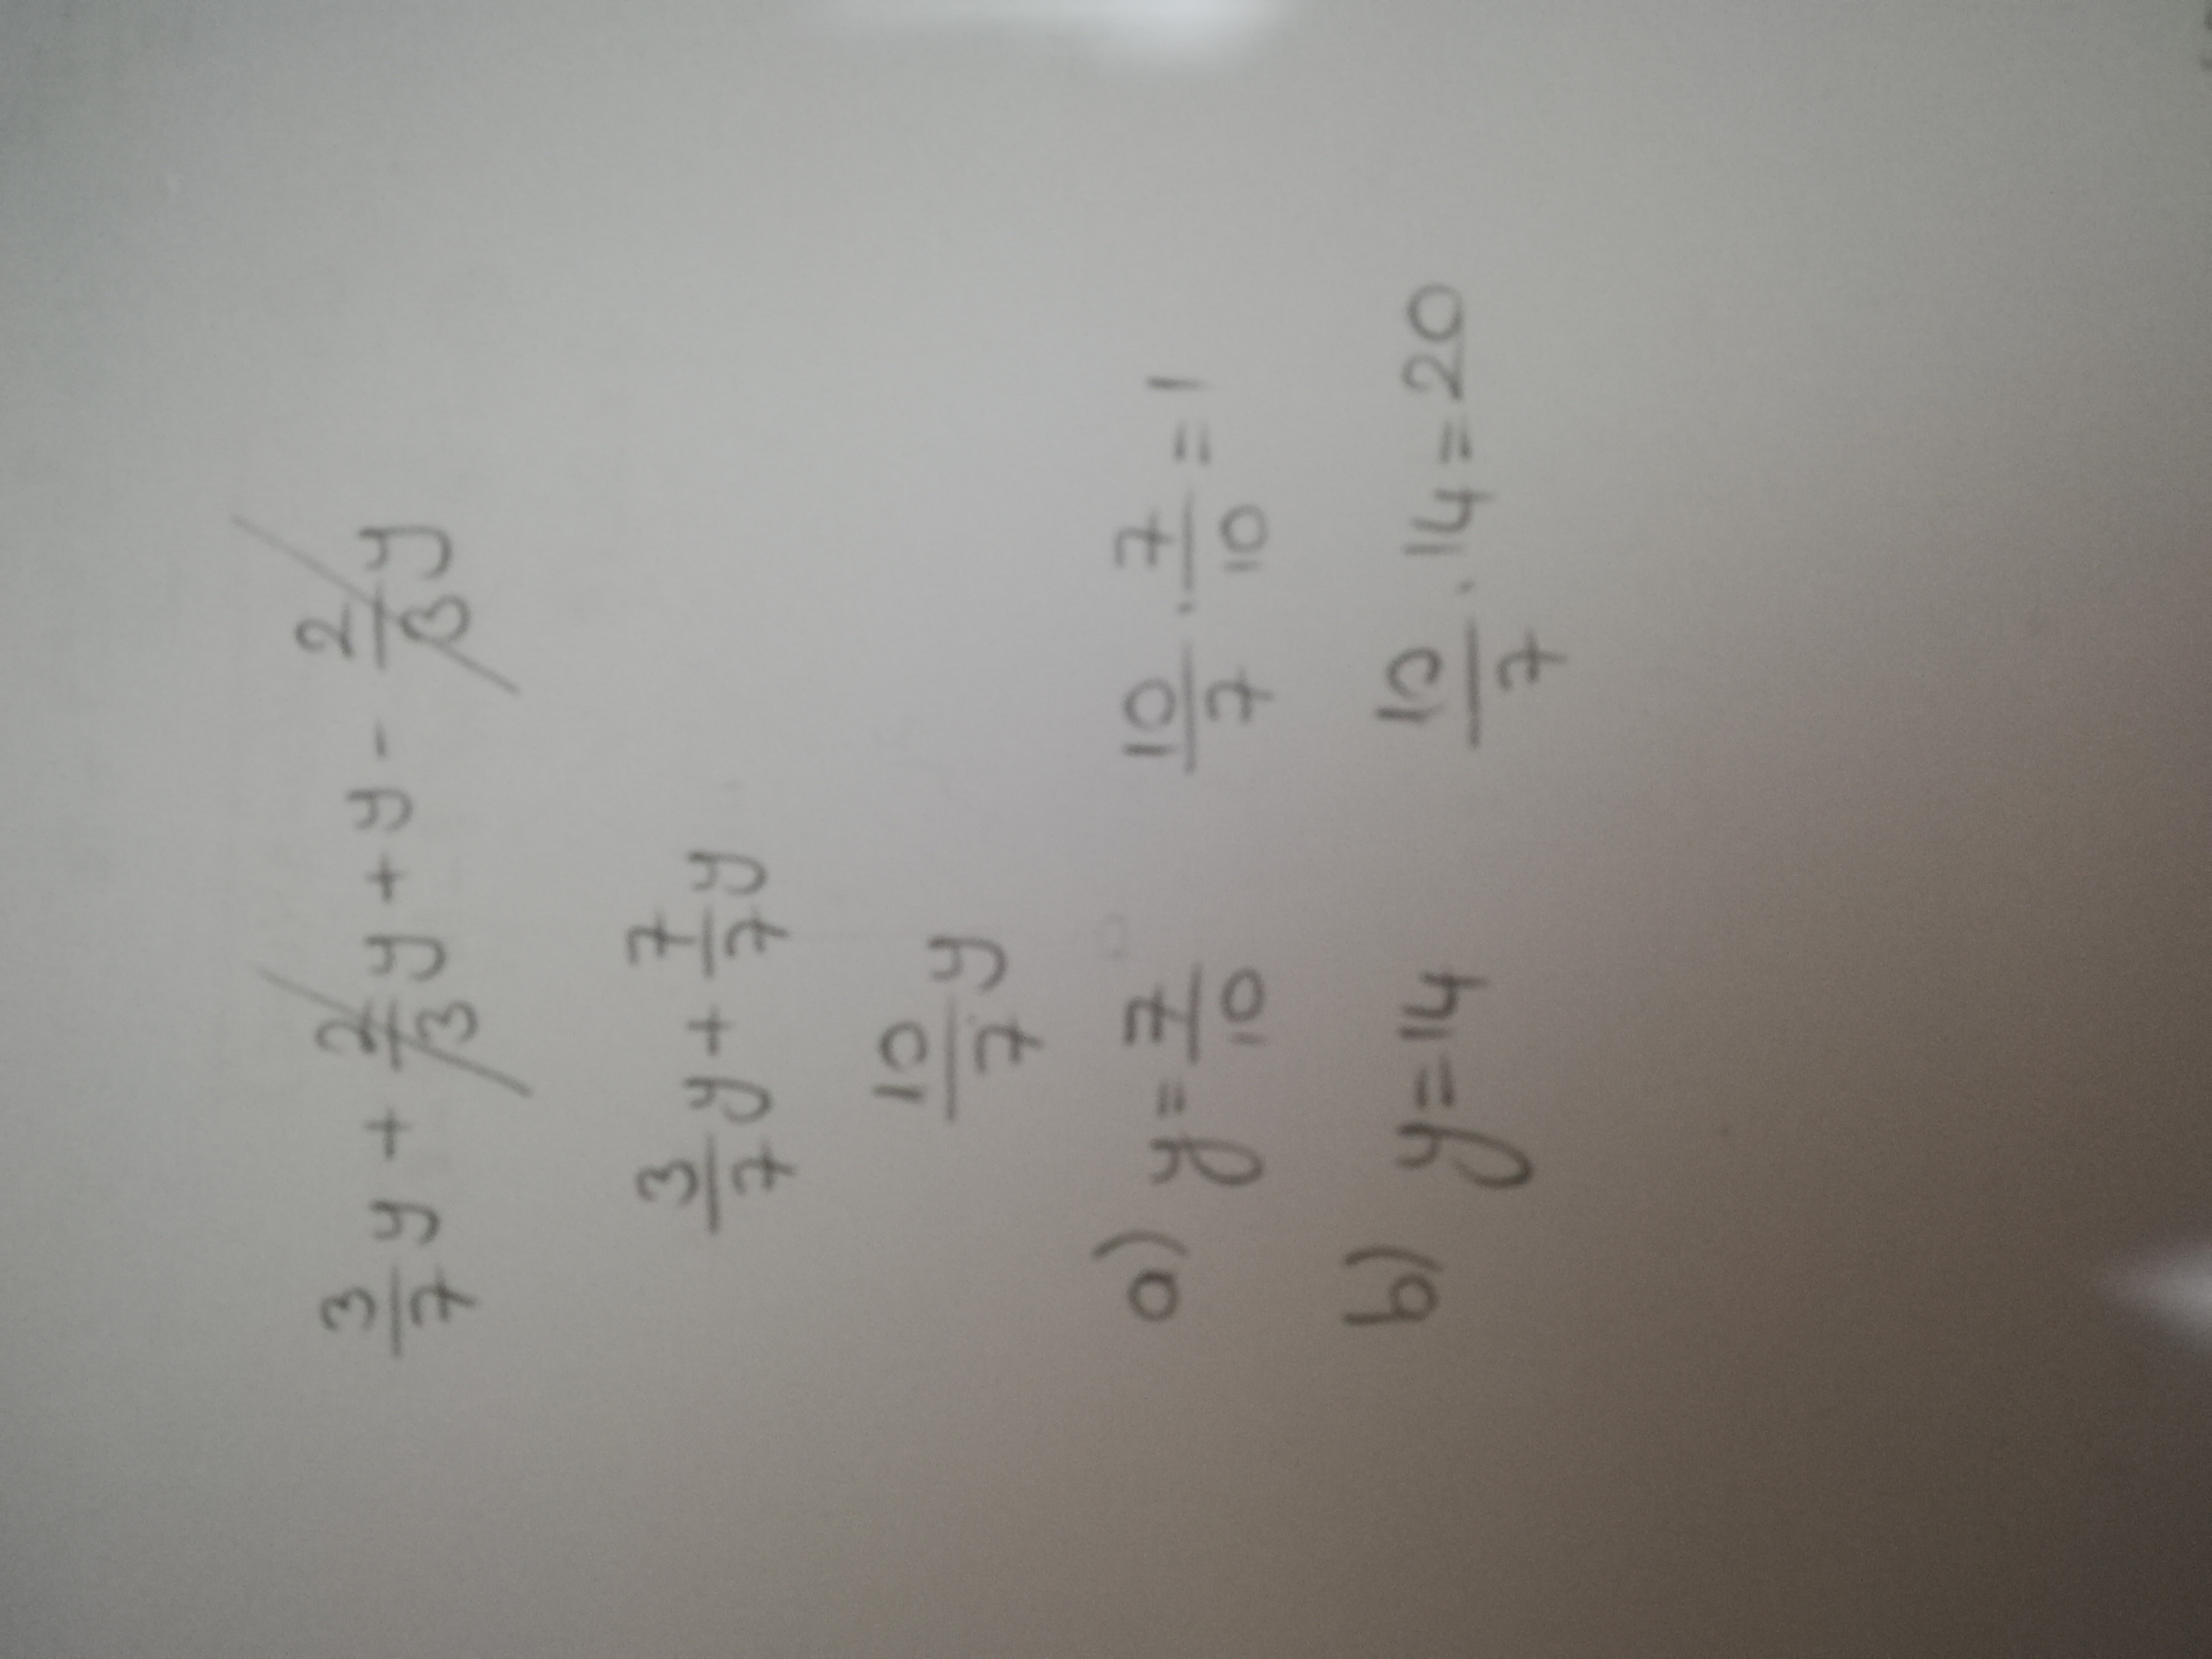 3/7 y + 2/3 y + y - 2/3 y
3/7 y + 7/7 y
10/7 y
a) y = 7/10 10/7 · 7/10 = 1
b) y = 14 10/7 · 14 = 20